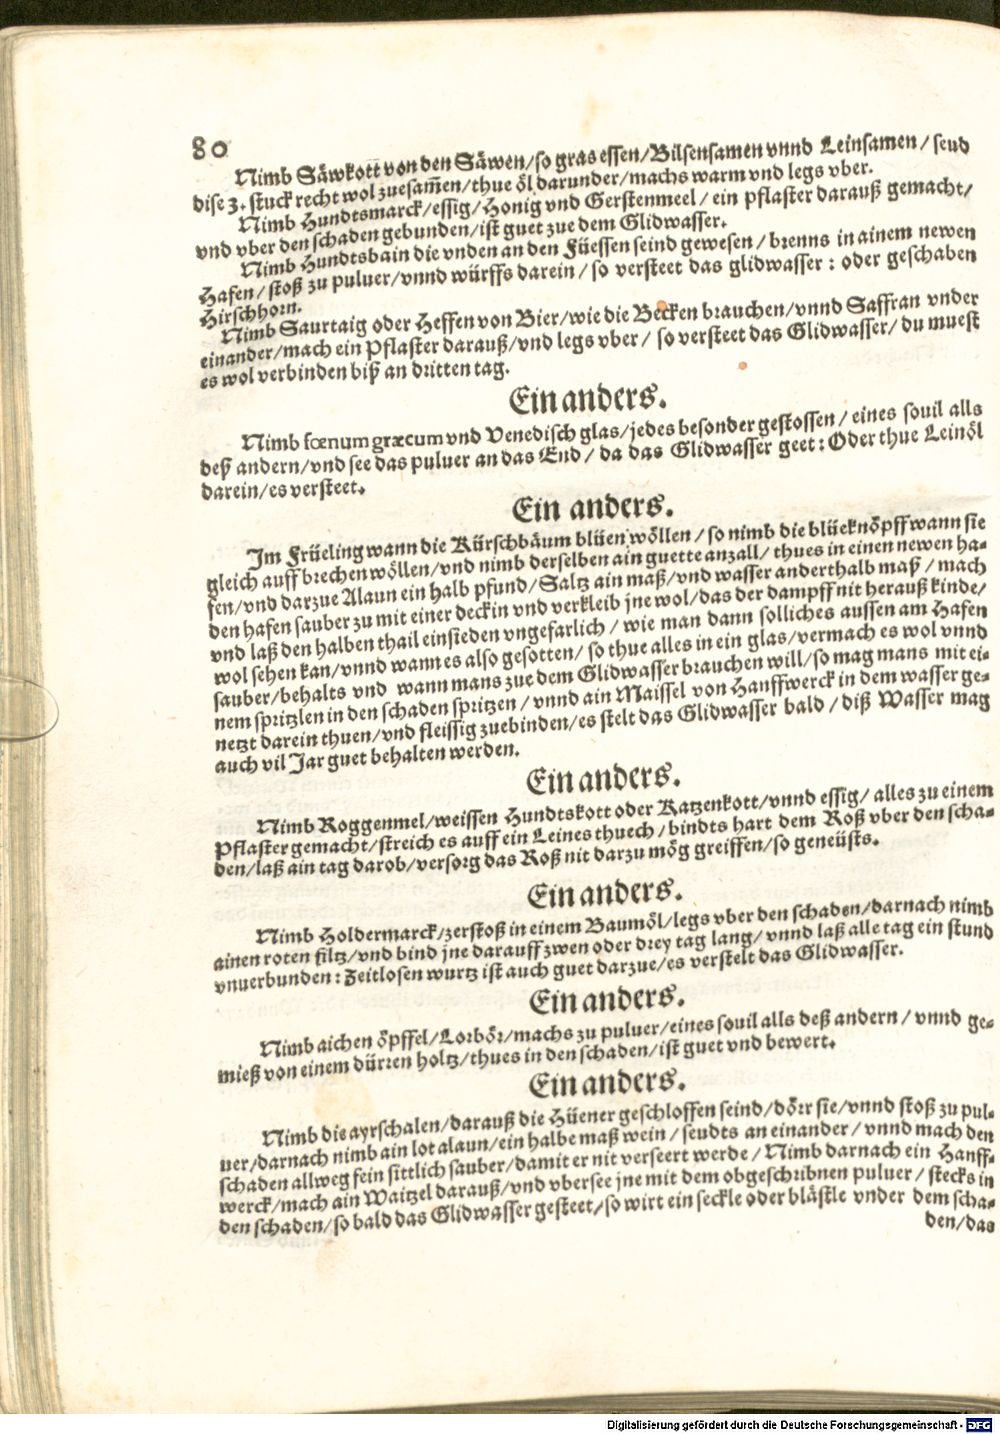 80
Nimb Säwkott von den Säwen/so gras essen/Bilsensamen vnnd Leinsamen/seud
dise 3. stuck recht wol zuesam̃en/thue öl darunder/machs warm vnd legs vber.
Nimb Hundtsmarck/essig/Honig vnd Gerstenmeel/ein pflaster darauß gemacht/
vnd vber den schaden gebunden/ist guet zue dem Glidwasser.
Nimb Hundtsbain die vnden an den Füessen seind gewesen/brenns in ainem newen
Hafen/stoß zu puluer/vnnd würffs darein/so versteet das glidwasser: oder geschaben
Hirschhorn.
Nimb Saurtaig oder Heffen von Bier/wie die Becken brauchen/vnnd Saffran vnder
einander/mach ein Pflaster darauß/vnd legs vber/so versteet das Glidwasser/du muest
es wol verbinden biß an dritten tag.
Ein anders.
Nimb fœnum græcum vnd Venedisch glas/jedes besonder gestossen/eines souil alls
deß andern/vnd see das puluer an das End/da das Glidwasser geet: Oder thue Leinöl
darein/es versteet.
Ein anders.
Im Früeling wann die Kürschbäum blüen wöllen/so nimb die blüeknöpff wann sie
gleich auff brechen wöllen/vnd nimb derselben ain guette anzall/thues in einen newen ha-
fen/vnd darzue Alaun ein halb pfund/Saltz ain maß/vnd wasser anderthalb maß/mach
den hafen sauber zu mit einer deckin vnd verkleib jne wol/das der dampff nit herauß kinde/
vnd laß den halben thail einsieden vngefarlich/wie man dann solliches aussen am Hafen
wol sehen kan/vnnd wann es also gesotten/so thue alles in ein glas/vermach es wol vnnd
sauber/behalts vnd wann mans zue dem Glidwasser brauchen will/so mag mans mit ei-
nem spritzlen in den schaden spritzen/vnnd ain Maissel von Hanffwerck in dem wasser ge-
netzt darein thuen/vnd fleissig zuebinden/es stelt das Glidwasser bald/diß Wasser mag
auch vil Jar guet behalten werden.
Ein anders.
Nimb Roggenmel/weissen Hundtskott oder Katzenkott/vnnd essig/alles zu einem
Pflaster gemacht/streich es auff ein Leines thuech/bindts hart dem Roß vber den scha-
den/laß ain tag darob/versorg das Roß nit darzu mög greiffen/so geneüsts.
Ein anders.
Nimb Holdermarck/zerstoß in einem Baumöl/legs vber den schaden/darnach nimb
ainen roten filtz/vnd bind jne darauff zwen oder drey tag lang/vnnd laß alle tag ein stund
vnuerbunden: Zeitlosen wurtz ist auch guet darzue/es verstelt das Glidwasser.
Ein anders.
Nimb aichen öpffel/Lorbör/machs zu puluer/eines souil alls deß andern/vnnd ge-
mieß von einem dürren holtz/thues in den schaden/ist guet vnd bewert.
Ein anders.
Nimb die ayrschalen/darauß die Hüener geschloffen seind/dörr sie/vnnd stoß zu pul-
uer/darnach nimb ain lot alaun/ein halbe maß wein/seudts an einander/vnnd mach den
schaden allweg fein sittlich sauber/damit er nit verseert werde/Nimb darnach ein Hanff-
werck/mach ain Waitzel darauß/vnd vbersee jne mit dem obgeschribnen puluer/stecks in
den schaden/so bald das Glidwasser gesteet/so wirt ein seckle oder blästle vnder dem scha-
den/das
Digitalisierung gefördert durch die Deutsche Forschungsgemeinschaft - DFG